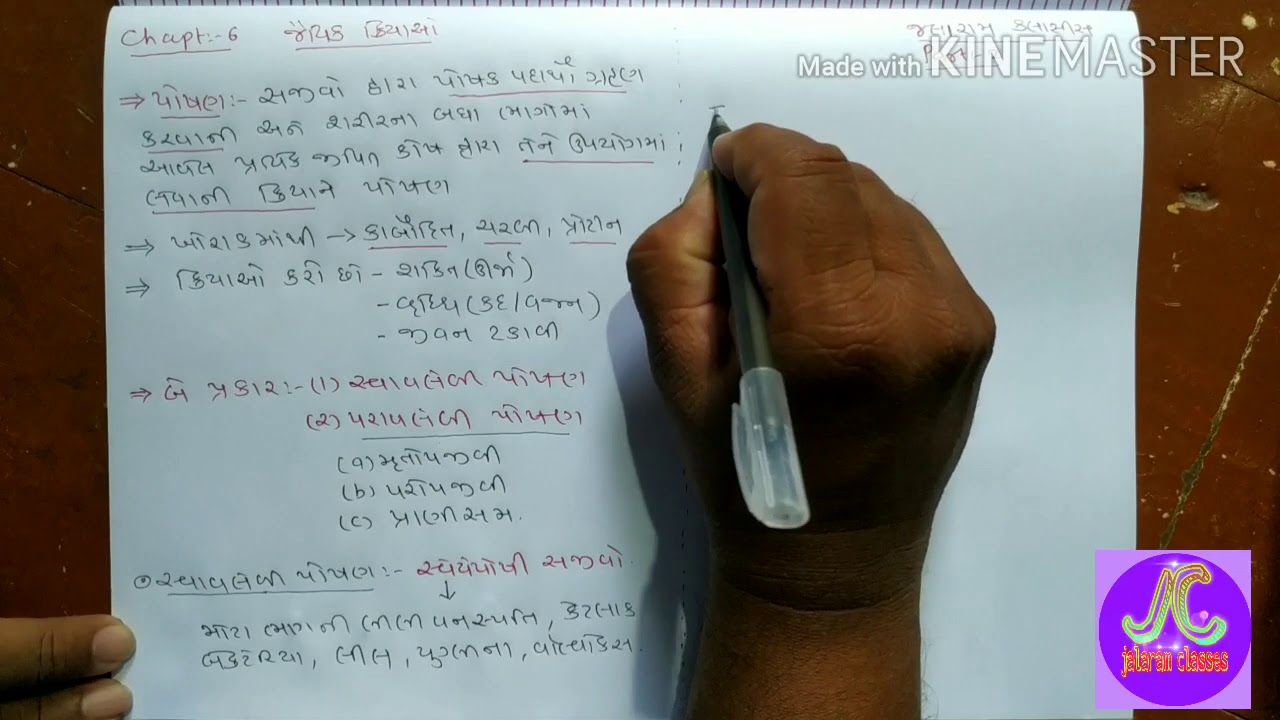 Chapt:-6 જૈવિક ક્રિયાઓ
જલારામ કલાસીસ
Made with KINEMASTER
⇒ પોષણ:- સજીવો દ્વારા પોષક પદાર્થો ગ્રહણ
કરવાની અને શરીરના બધા ભાગોમાં
આવેલ પ્રત્યેક જીવિત કોષ દ્વારા તેને ઉપયોગમાં
લેવાની ક્રિયાને પોષણ
⇒ ખોરાકમાંથી → કાર્બોદિત, ચરબી, પ્રોટીન
⇒ ક્રિયાઓ કરી છો - શકિત (ઊર્જા)
- વૃધ્ધિ (કદ/વજન)
- જીવન ટકાવી
⇒ બે પ્રકાર:- (૧) સ્વાવલંબી પોષણ
(૨) પરાવલંબી પોષણ
(a) મૃતોપજીવી
(b) પરોપજીવી
(c) પ્રાણીસમ.
⊙ સ્વાવલંબી પોષણ:- સ્વયંપોષી સજીવો.
↓
મોટા ભાગની લીલી વનસ્પતિ, કેટલાક
બેકટેરિયા, લીલ, યુગ્લીના, વોલ્વોકસ.
jalaran classes